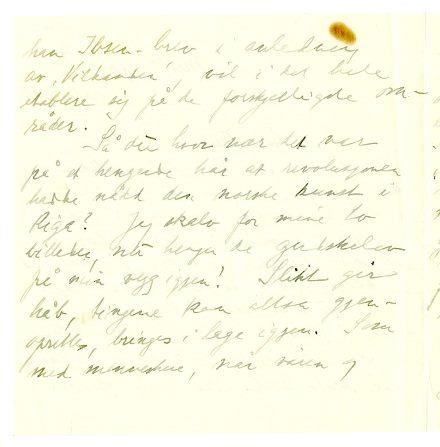 han Ibsen-brev i anledning
av "Vildanden", vil i det hele
etablere sig på de forskjelligste om-
råder.
Så du hvor nær det var
på et hengende hår at revolusjonen
hadde nådd den norske kunst i
Riga? Jeg skalv for mine to
billeder, nu henger de gudskelov
på min vegg igjen! Slikt gir
håb, tingene kan altså gjen-
oprettes, bringes i lage igjen. Som
med menneskene, når våren og